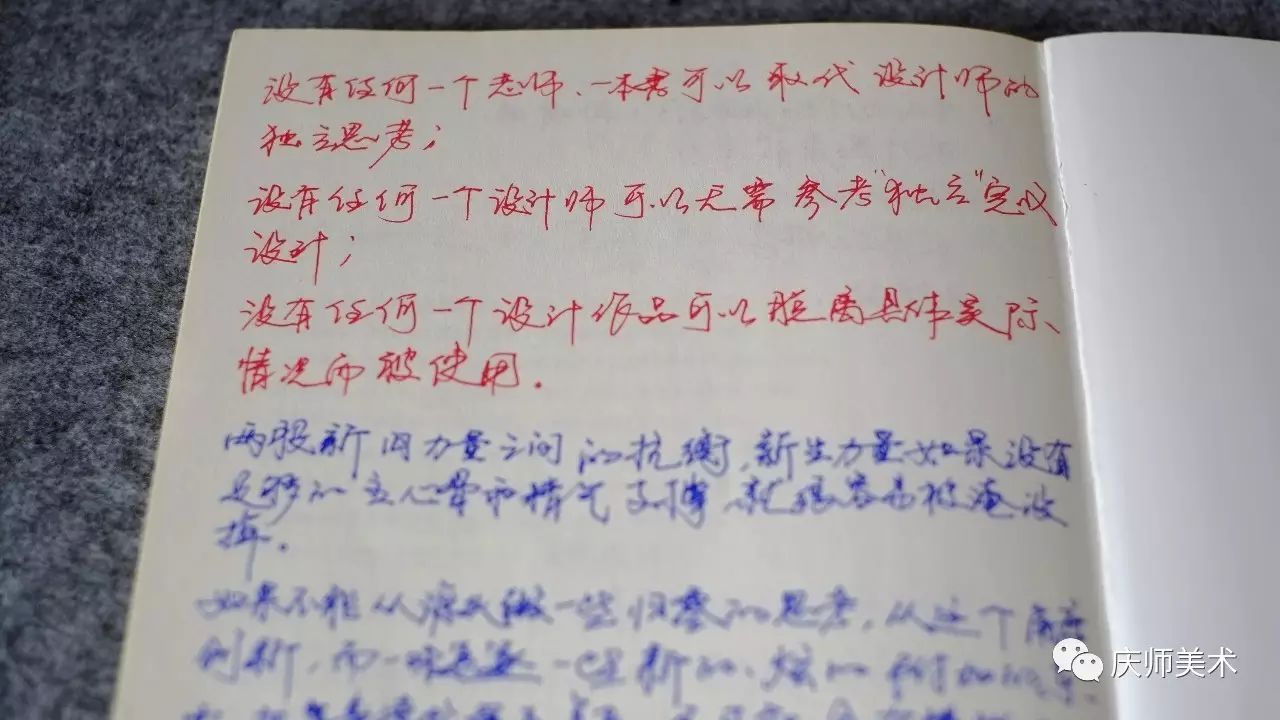 没有任何一个老师、一本书可以取代设计师的
独立思考；
没有任何一个设计师可以无需参考“独立”完成
设计；
没有任何一个设计作品可以脱离具体实际、
情况而被使用。
两股新旧力量之间的抗衡，新生力量如果没有
足够的主心骨和精气 就很容易被淹没
掉。
如果不能从源头做一些归零的思考，从这个角度
创新，而一味追逐一些新的、炫的
庆师美术